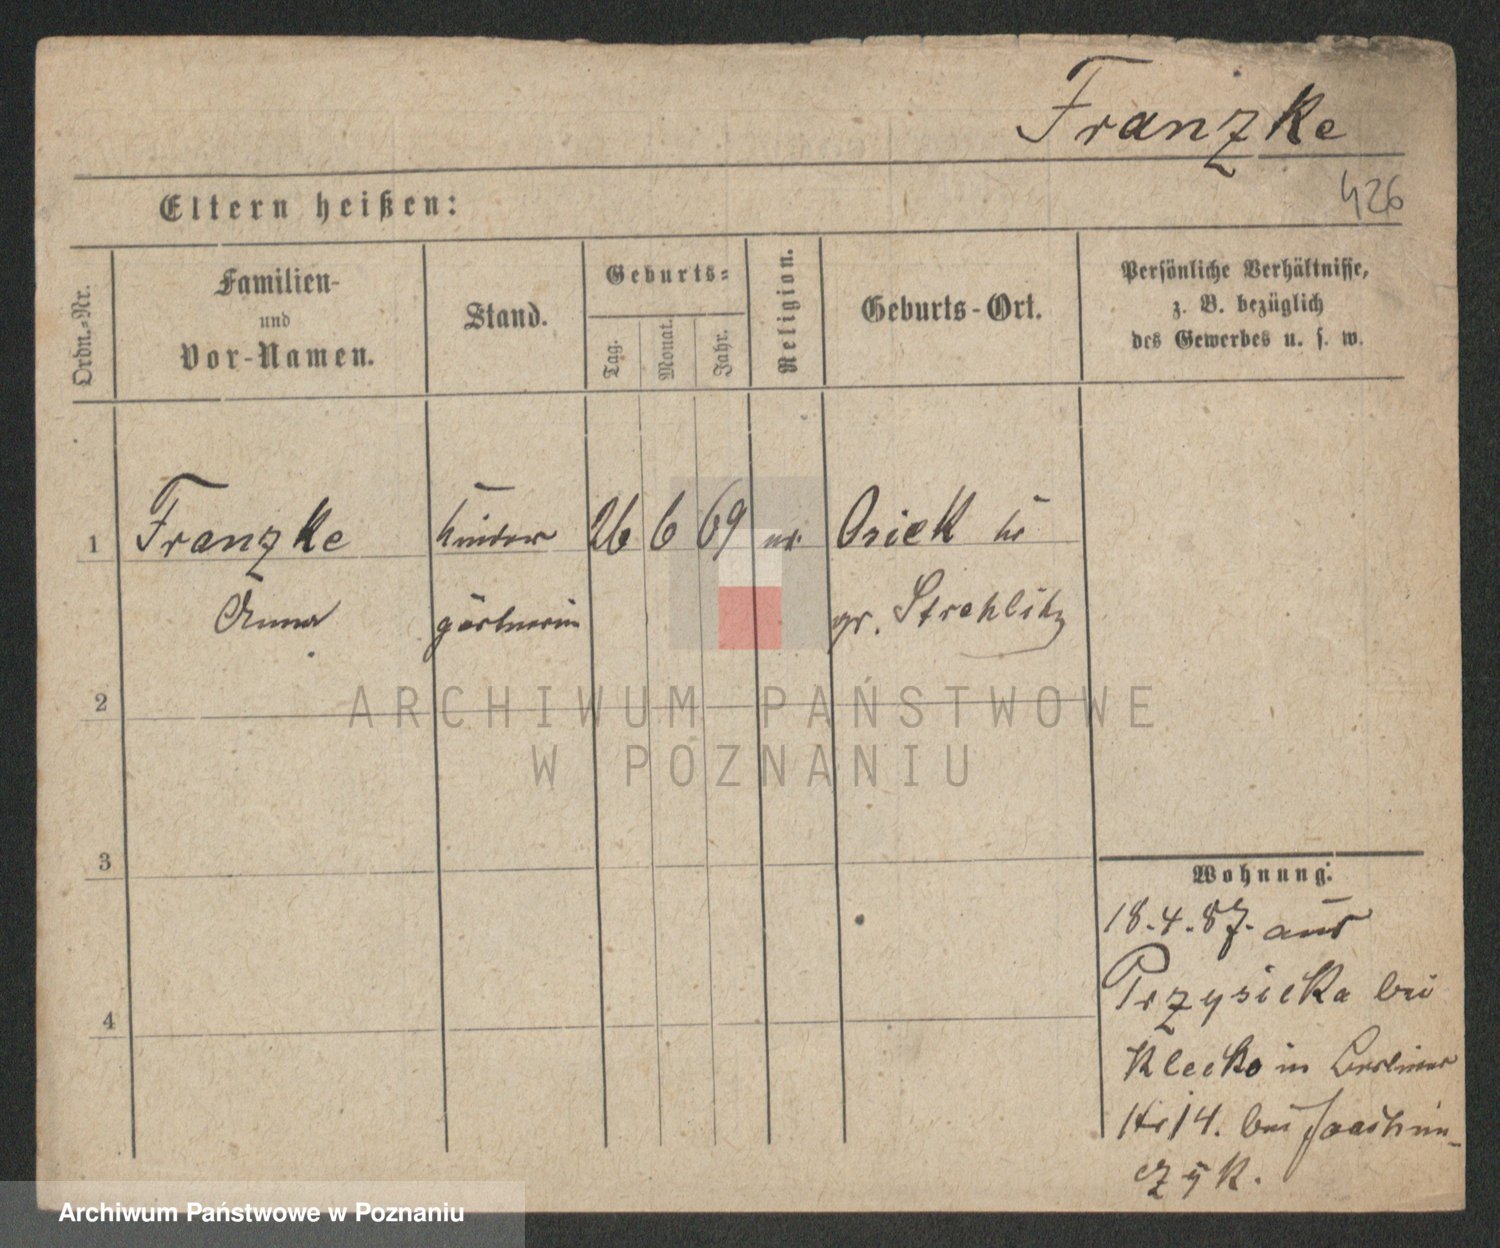 Franzke
426
Eltern heißen:
Ordn.-Nr.
Familien-
und
Vor-Namen.
Stand.
Geburts-
Tag.
Monat.
Jahr.
Religion.
Geburts-Ort.
Persönliche Verhältnisse,
z. B. bezüglich
des Gewerbes u. s. w.
1 Franzke Kinder 26 6 69 Osiek Kr
Anna gärtnerin gr. Strehlitz
ARCHIWUM PAŃSTWOWE
W POZNANIU
2
3
4
Wohnung:
18.4.87. aus
Przysieka bei
Klecko in Berliner
Str 14. bei Joachim-
czyk.
Archiwum Państwowe w Poznaniu